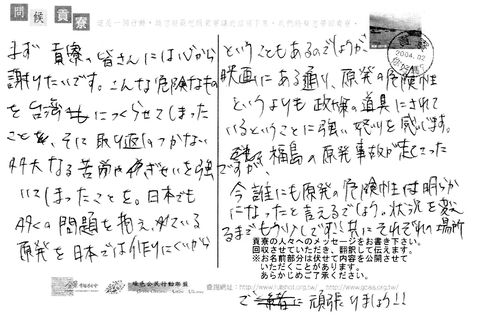 問候貢寮
まず 貢寮の皆さんには心から
謝りたいです。こんな危険なもの
を台湾につくらせてしまった
ことを、そこに取り返しのつかない
多大なる苦労やぎせいを強
いてしまったことを。日本でも
多くの問題を抱え、ている
原発を日本では作りにくいから
ということもあるのでしょうが、
映画にある通り、原発の危険性
というよりも政権の道具にされて
いるということに強い怒りを感じます。
ですが、福島の原発事故が起こってった
今誰にも原発の危険性は明らか
になったと言えるでしょう。状況を変え
るまでもう少しです!! 共にそれぞれの場所
貢寮の人々へのメッセージをお書き下さい。
回収させていただき、翻訳して伝えます。
※お名前部分は伏せて内容を公開させて
いただくことがあります。
あらかじめご了承ください。
で 頑張りましょう!!
綠色公民行動聯盟
2004.02